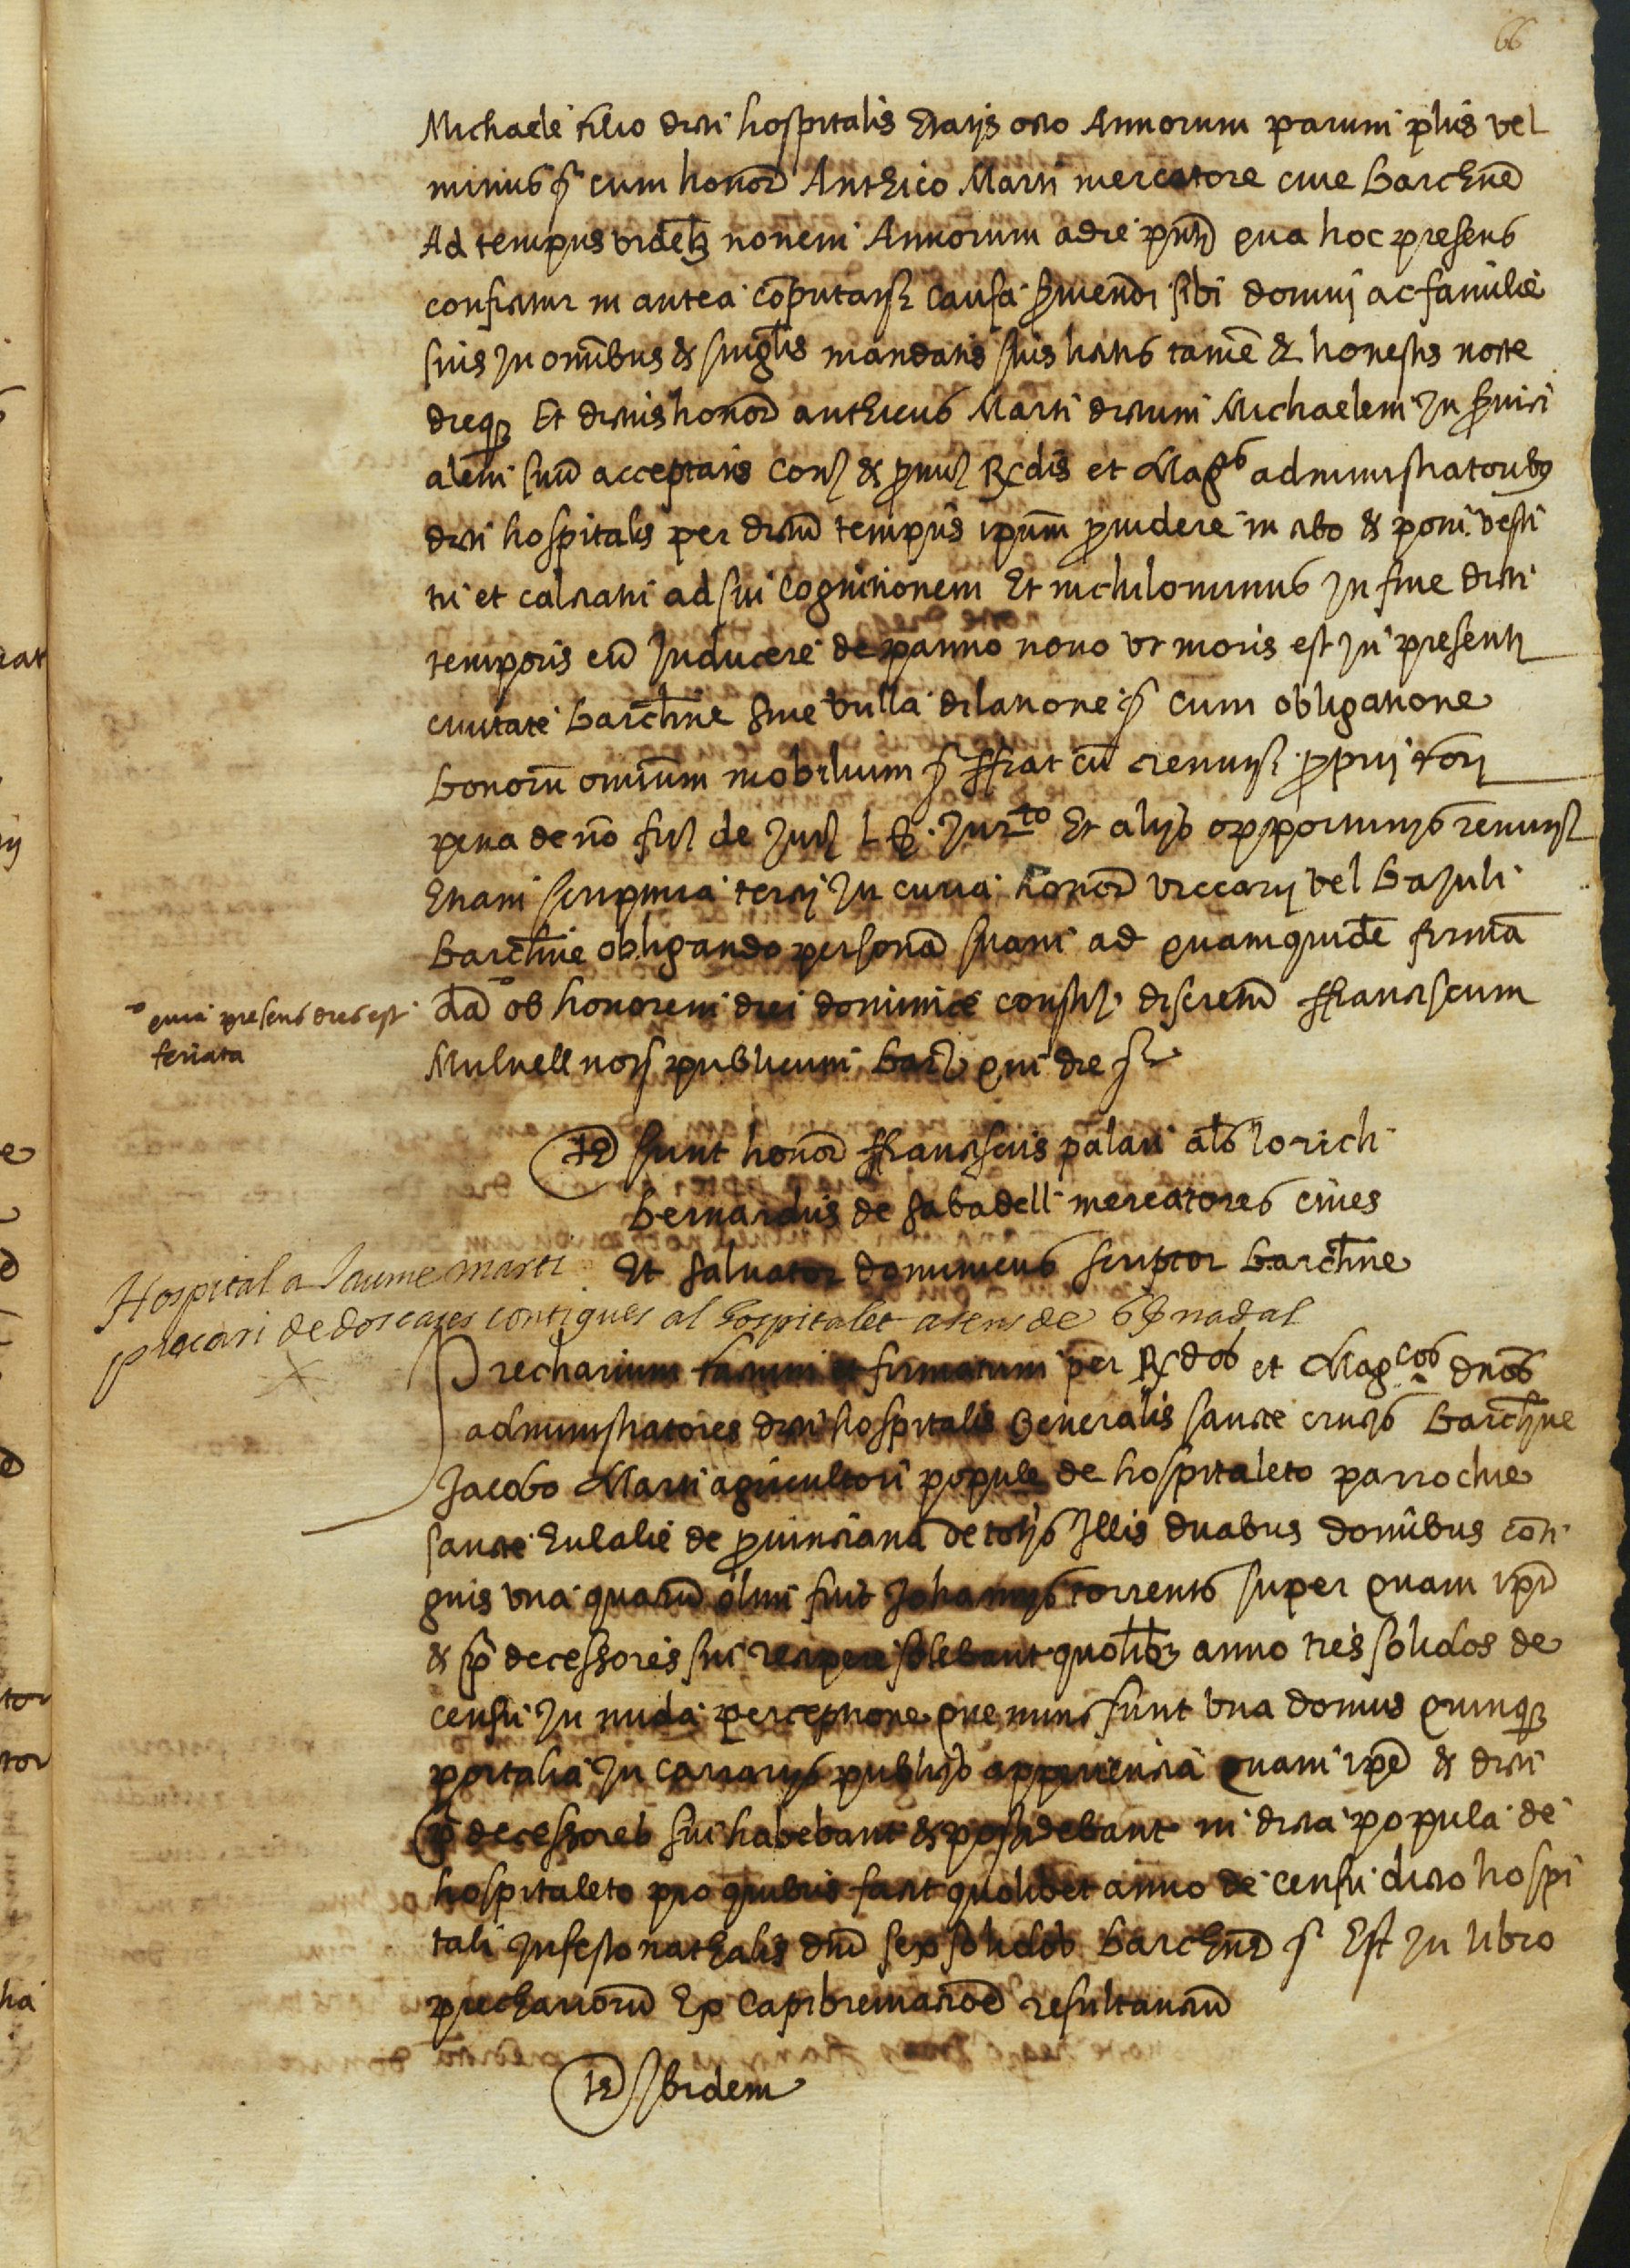 66
Michaele filio dicti hospitalis Etatis octo Annorum parum plus vel
minus cum honor Antheico Marti mercatore cive barchene
Ad tempus videlz novem Annorum a die pnti qua hoc presens
conficitur in antea computans Causa serviendi sibi domui ac familie
suis In omnibus & singlis mandatis suis licitis tame & honestis nocte
dieq Et dictus honor antheicus Marti dictum Michaelem In servici
alem suu acceptans Conv & promit Rdis et Mag administratoribus
dicti hospitalis per dictu tempus ipsum providere in cibo & potu vesti
tu et calciatu ad sui Cognitionem Et nichilominus In fine dicti
temporis eu Inducere de panno novo ut moris est In presenti
civitate barchne sine ulla dilatione cum obligatione
bonoru omnium mobilium fiat cu renun proprii fori
pena de no de Jur Jurto Et alijs opportunis renun
Etiam scriptura tercij In curia honor viccarij vel bajuli
barchne obligando persona suam ad quamquide firma
da ob honorem diei dominice constit discretu ffranciscum
Mulnell not publicum bar qui die
o quia presens dies est
feriata
Ts sunt honor ffranciscus palau als lorich
bernardus de sabadell mercatores cives
Et salvator dominicus scriptor barchne
Hospital a Jaume marti
precari de dos cases contigues al hospitalet a sens de 6 nadal
Precharium factum et firmatum per Rdos et Magcos dnos
administratores dicti hospitalis Generalis sancte crucis barchne
Jacobo Marti agricultori popule de hospitaleto parrochie
sancte Eulalie de provinciana de totis Illis duabus domibus conti
guis una quaru olim fuit Johannis torrents super quam ipi
& predecessores sui recipere solebant quolibz anno tres solidos de
censu In nuda perceptione que nunc sunt una domus quinq
portalia In carrarijs publicis apperiencia quam ipe & dicti
predecessores sui habebant & possidebant in dicta popula de
hospitaleto pro quibus facit quolibet anno de censu dicto hospi
tali In festo nathalis dni sex solidos barchene Est In libro
prechariorum Ex Capibreviacioe resultanciu
Ts Ibidem